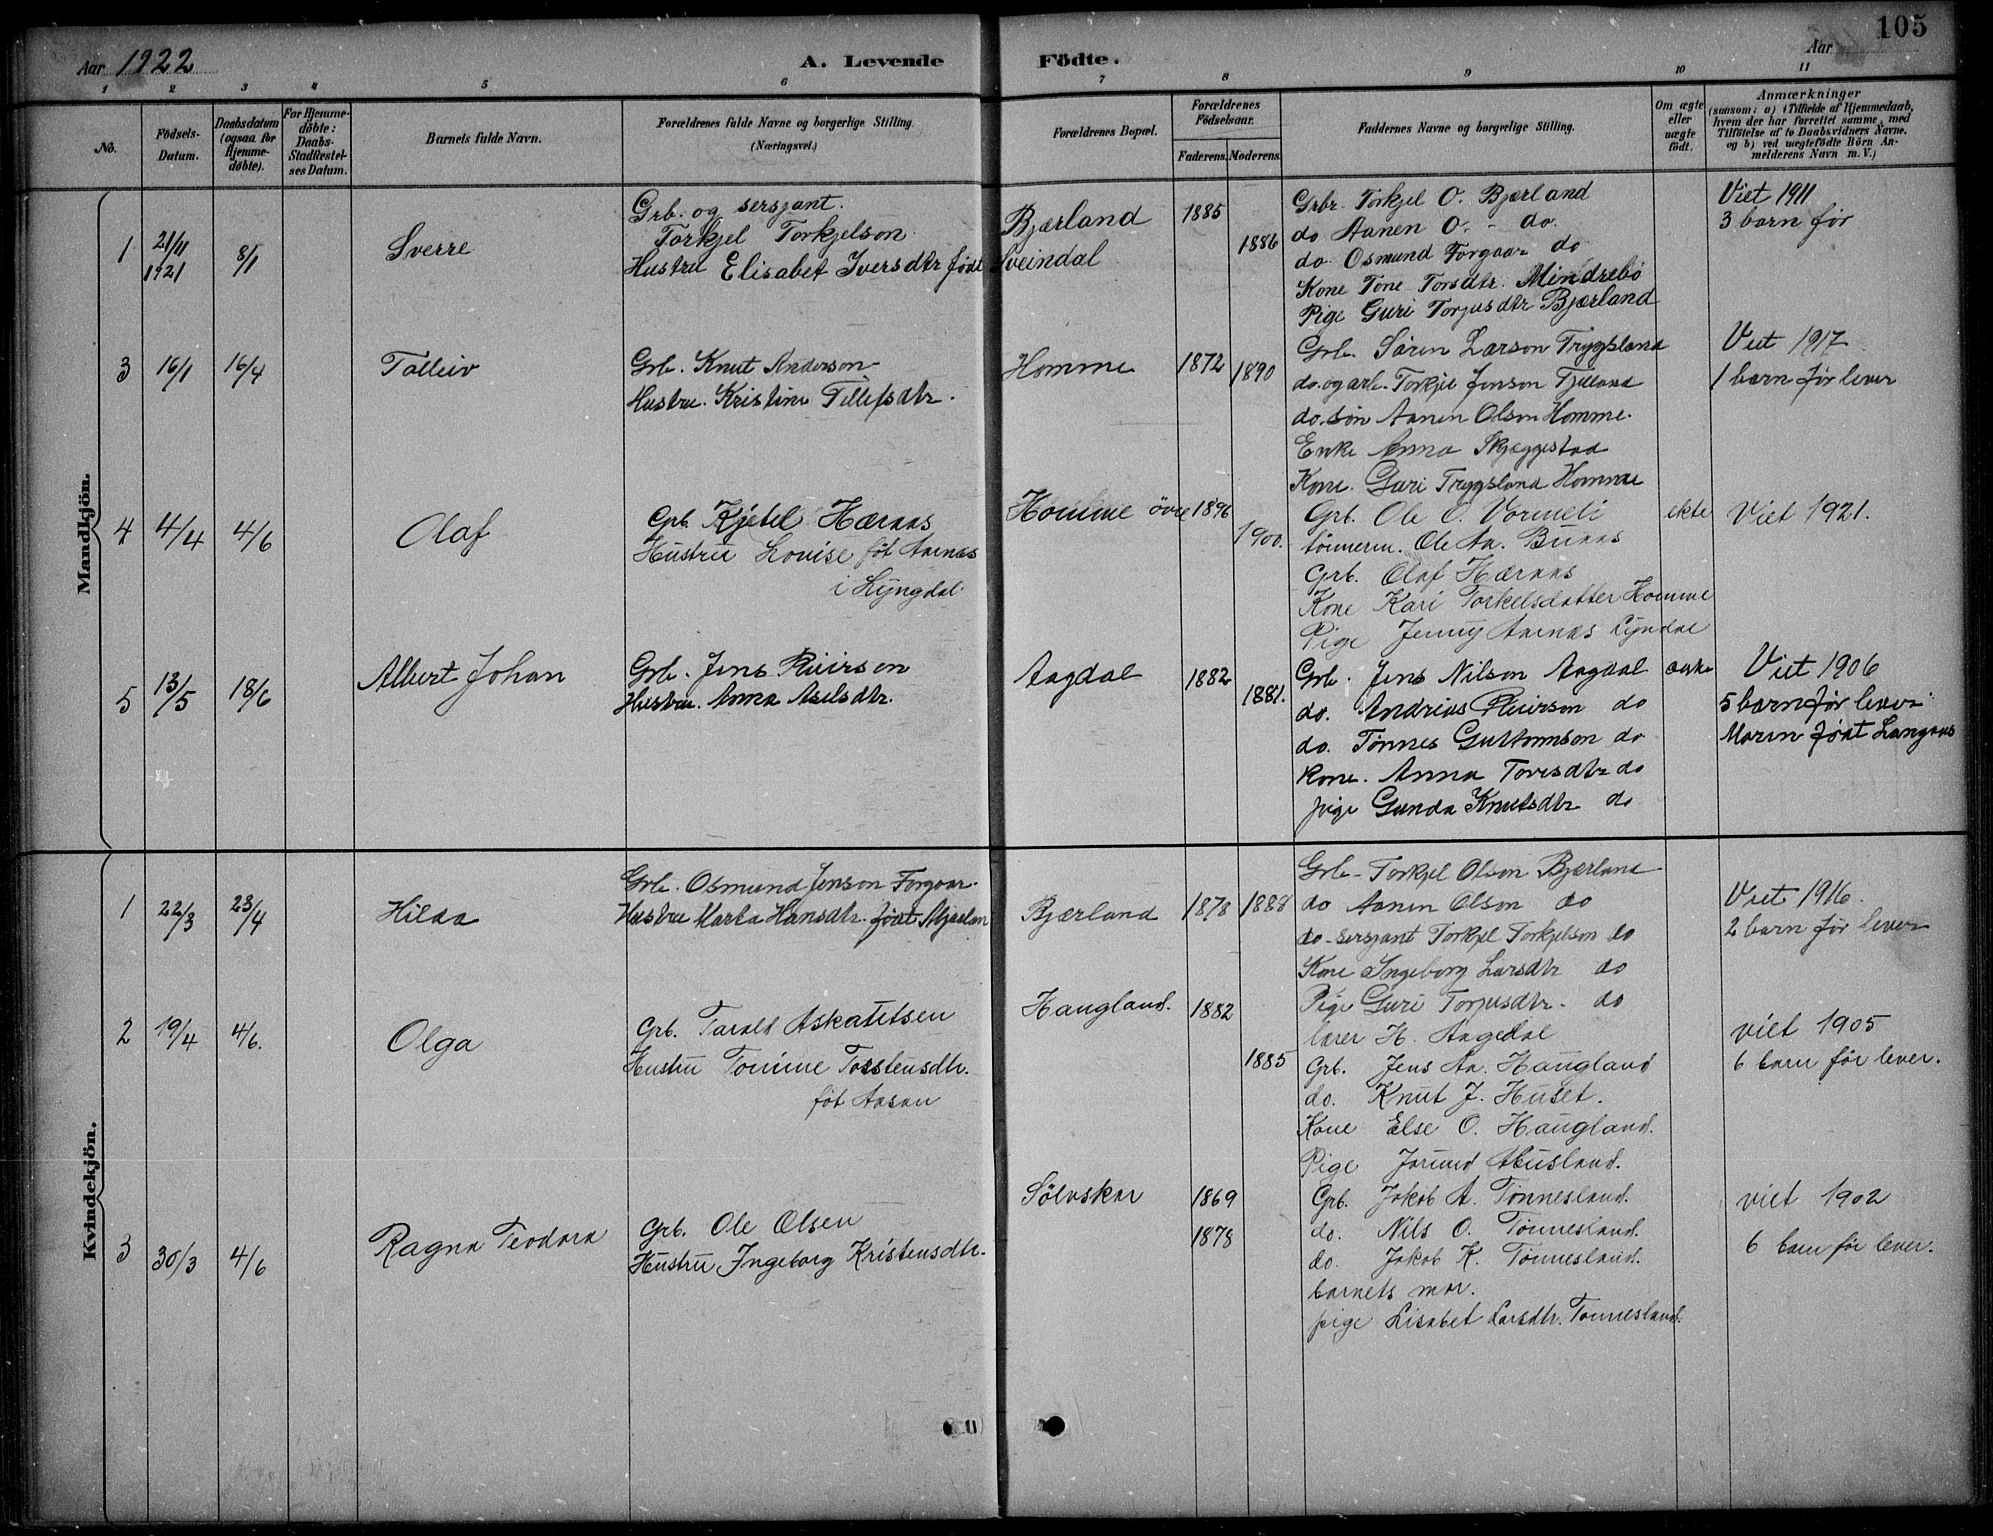 105
Aar 1922
A. Levende Födte.
Aar
1 2 3 4 5 6 7 8 9 10 11
No.
Födsels-Datum.
Daabsdatum (ogsaa for Hjemme-döbte).
For Hjemme-döbte: Daabs-Stadfæstel-ses Datum.
Barnets fulde Navn.
Forældrenes fulde Navne og borgerlige Stilling. (Næringsvei.)
Forældrenes Bopæl.
Forældrenes Födselsaar.
Faderens. Moderens.
Faddernes Navne og borgerlige Stilling.
Om ægte eller uægte födt.
Anmærkninger
(saasom: a) i Tilfælde af Hjemmedaab, hvem der har forrettet samme, med Tilföielse af to Daabsvidners Navne, og b) ved uægtefödte Börn An-melderens Navn m. V.)
Mandkjön.
1 21/11 1921 8/1 Sverre
Grb. og sersjant.
Torkjel Torkjelson
Hustru Elisabet Iversdtr født Sveindal
Bjærland
1885
1886
Grbr. Torkjel O. Bjærland
do Aanen O. - do.
do. Osmund Forgaar do
Kone Tone Torsdtr. Mindrebö
Pige Guri Torjusdtr Bjærland
Viet 1911
3 barn før
3 16/1 16/4 Talleiv
Grb. Knut Anderson
Hustru. Kristine Tellefsdtr.
Homme
1872
1890
Grb. Søren Larson Trygsland
do. og arb. Torkjel Jenson Fjelland
do. søn Aanen Olson Homme.
Enke Anna Skjæggestad
Kone. Guri Trygsland Homme
Viet 1917
1 barn før lever
4 4/4 4/6 Olaf
Grb. Kjetel Hæraas
Hustru Louise føt Aarnes
i Lyngdal
Homme övre
1896
1900.
Grb. Ole O. Vormeli
tömmerm. Ole Aa. Buaas
Grb. Olaf Hæraas
Kone Kari Torkelsdatter Homme
Pige Jenny Aarnes Lyndal
ekte
Viet 1921.
5 13/5 18/6 Albert Johan
Grb. Jens
Hustru. Anna Axelsdtr.
Aagdal
1882
1881.
Grb. Jens Nilson Aagdal
do. Andrias do
do. Tønnes Guttormson do
Kone. Anna Toresdtr do
pige Gunda Knutsdtr do
Viet 1906
5 barn før lever
Moren født Langaas
Kvindekjön.
1 22/3 23/4 Hilda
Grb. Osmund Jenson Forgaar.
Hustru Marta Hansdtr. født
Bjærland
1878 1888
Grb. Torkjel Olson Bjærland
do Aanen Olson do
do. sersjant Torkjel Torkjelson do
Kone Ingeborg Larsdtr do
Pige Guri Torjusdtr. do
Viet 1916.
2 barn før lever
2 19/4 4/6. Olga
Grb. Tarald Askatitsen
Hustru Tomine Torstensdtr.
føt Aasan
Haugland.
1882
1885
lærer H. Aagedal
Grb. Jens Aa. Haugland
do. Knut J. Huset.
Kone Else O. Haugland.
Pige Jorund
viet 1905
6 barn før lever.
3 30/3 4/6 Ragna Teodora
Grb. Ole Olsen
Hustru Ingeborg Kristensdtr.
Sölvskar
1869
1878
Grb. Jakob A. Tønnesland.
do. Nils O. Tønnesland.
do. Jakob K. Tønnesland.
barnets mor.
pige Lisabet Larsdtr. Tønnesland.
viet 1902
6 barn før lever.